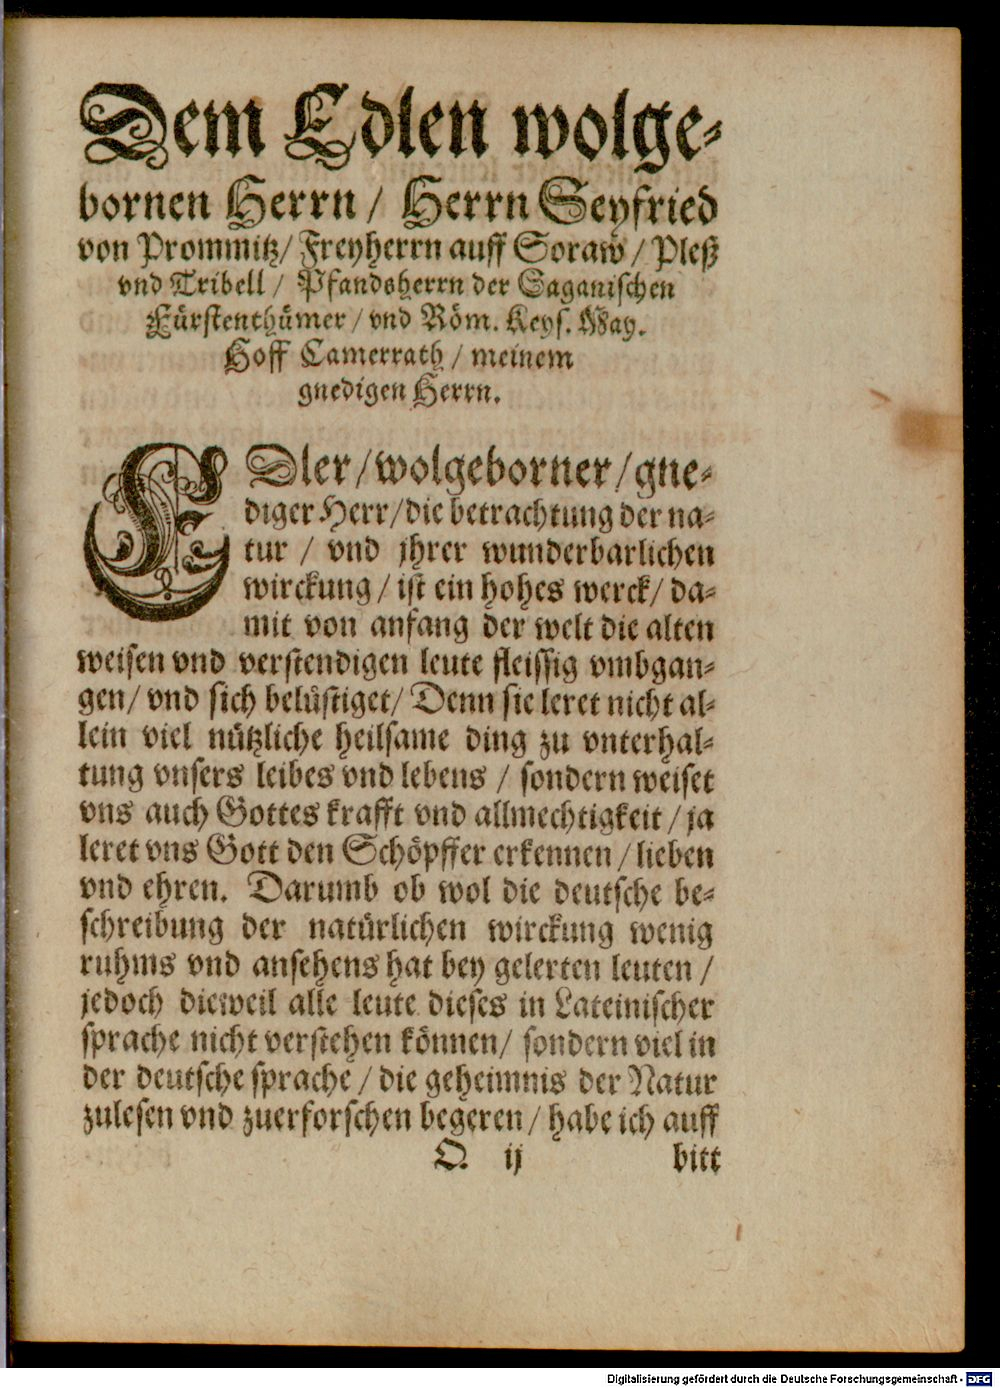 Dem Edlen wolge-
bornen Herrn / Herrn Seyfried
von Prommitz / Freyherrn auff Soraw / Pleß
vnd Tribell / Pfandsherrn der Saganischen
Fürstenthümer / vnd Röm. Keys. May.
Hoff Camerrath / meinem
gnedigen Herrn.
EDler / wolgeborner / gne-
diger Herr / die betrachtung der na-
tur / vnd jhrer wunderbarlichen
wirckung / ist ein hohes werck / da-
mit von anfang der welt die alten
weisen vnd verstendigen leute fleissig vmbgan-
gen / vnd sich belüstiget / Denn sie leret nicht al-
lein viel nützliche heilsame ding zu vnterhal-
tung vnsers leibes vnd lebens / sondern weiset
vns auch Gottes krafft vnd allmechtigkeit / ja
leret vns Gott den Schöpffer erkennen / lieben
vnd ehren. Darumb ob wol die deutsche be-
schreibung der natürlichen wirckung wenig
ruhms vnd ansehens hat bey gelerten leuten /
jedoch dieweil alle leute dieses in Lateinischer
sprache nicht verstehen können / sondern viel in
der deutsche sprache / die geheimnis der Natur
zulesen vnd zuerforschen begeren / habe ich auff
O ij bitt
Digitalisierung gefördert durch die Deutsche Forschungsgemeinschaft - DFG